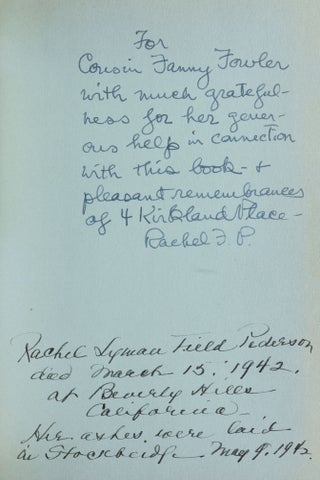 For
Cousin Fanny Fowler
with much grateful-
ness for her gener-
ous help in connection
with this book - &
pleasant remembrances
of 4 Kirkland Place -
Rachel F. P.
Rachel Lyman Field Pederson
died March 15, 1942.
at Beverly Hills
California -
Her ashes were laid
in Stockbridge May 9, 1942.